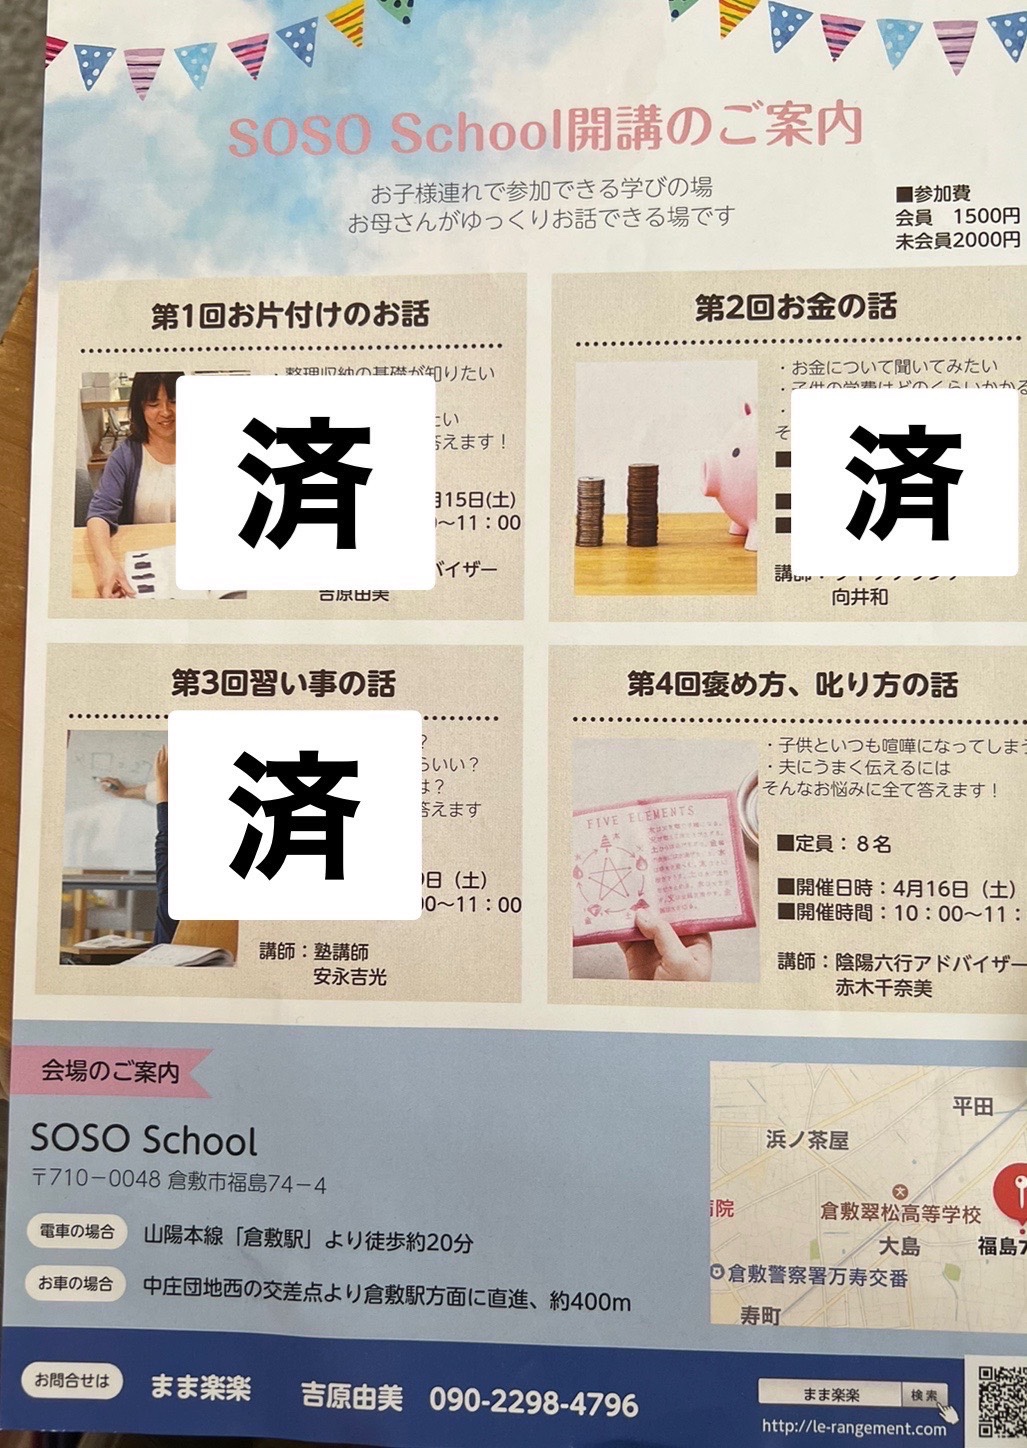 SOSO School開講のご案内
お子様連れで参加できる学びの場
お母さんがゆっくりお話できる場です
■参加費
会員 1500円
未会員2000円
第1回お片付けのお話
・整理収納の基礎が知りたい
たい
答えます！
月15日(土)
〜11：00
バイザー
吉原由美
済
第2回お金の話
・お金について聞いてみたい
・子供の学費はどのくらいかかる
済
講師：
向井和
第3回習い事の話
？
らいい？
は？
答えます
9日（土）
00〜11：00
講師：塾講師
安永吉光
済
第4回褒め方、叱り方の話
・子供といつも喧嘩になってしまう
・夫にうまく伝えるには
そんなお悩みに全て答えます！
■定員：８名
■開催日時：4月16日（土）
■開催時間：10：00〜11：
講師：陰陽六行アドバイザー
赤木千奈美
FIVE ELEMENTS
会場のご案内
SOSO School
〒710－0048 倉敷市福島74－4
電車の場合 山陽本線「倉敷駅」より徒歩約20分
お車の場合 中庄団地西の交差点より倉敷駅方面に直進、約400m
平田
浜ノ茶屋
病院
倉敷翠松高等学校
大島
福島7
倉敷警察署万寿交番
寿町
お問合せは まま楽楽 吉原由美 090-2298-4796
まま楽楽 検索
http://le-rangement.com